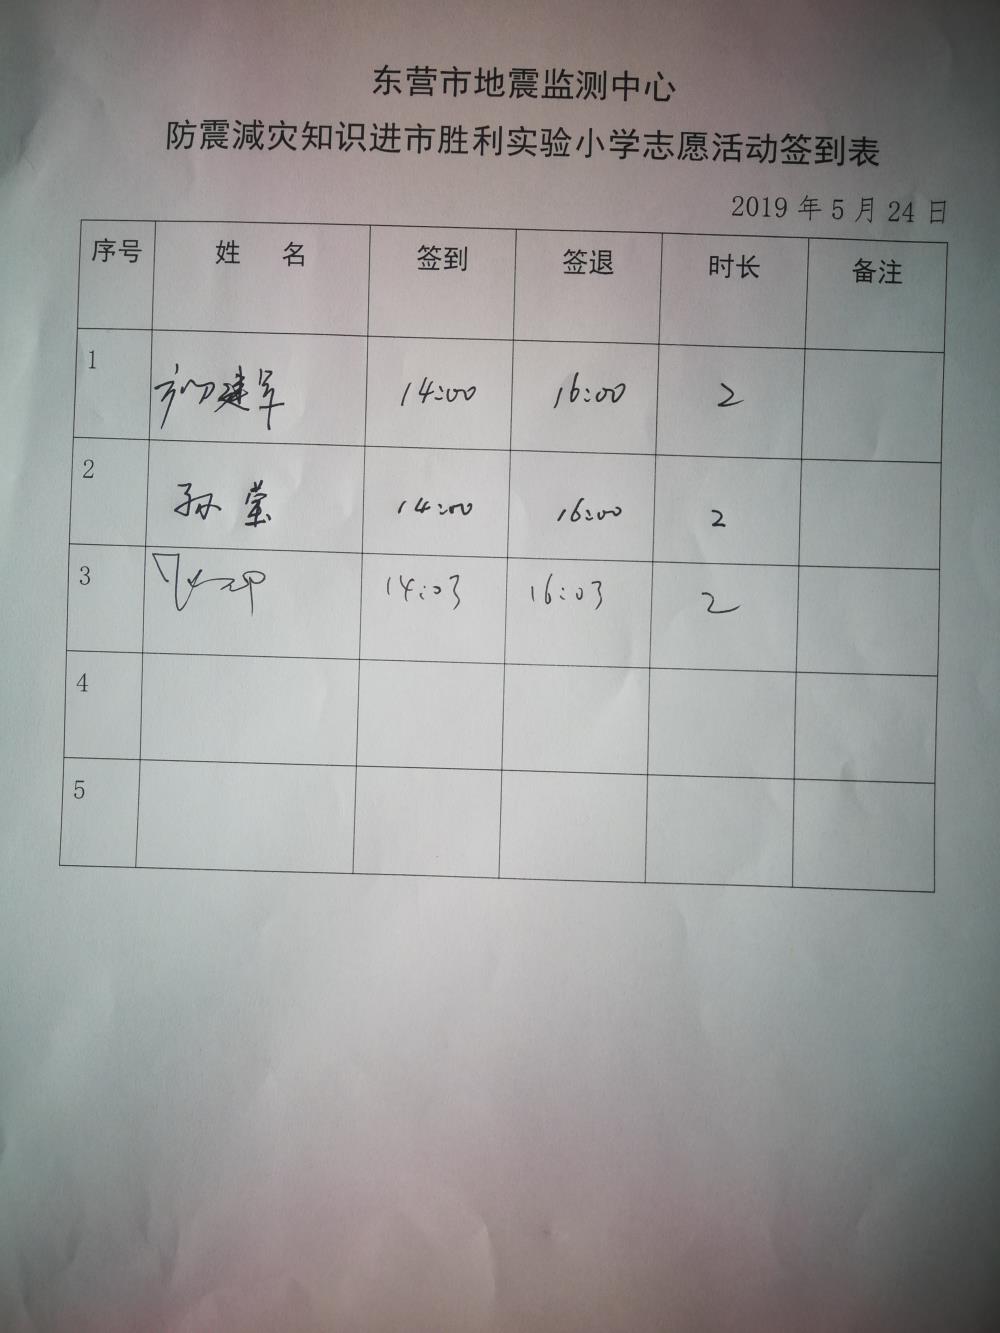 东营市地震监测中心
防震减灾知识进市胜利实验小学志愿活动签到表
2019 年 5 月 24 日
序号 姓 名 签到 签退 时长 备注
1 建军 14:00 16:00 2
2 孙莹 14:00 16:00 2
3 14:03 16:03 2
4
5